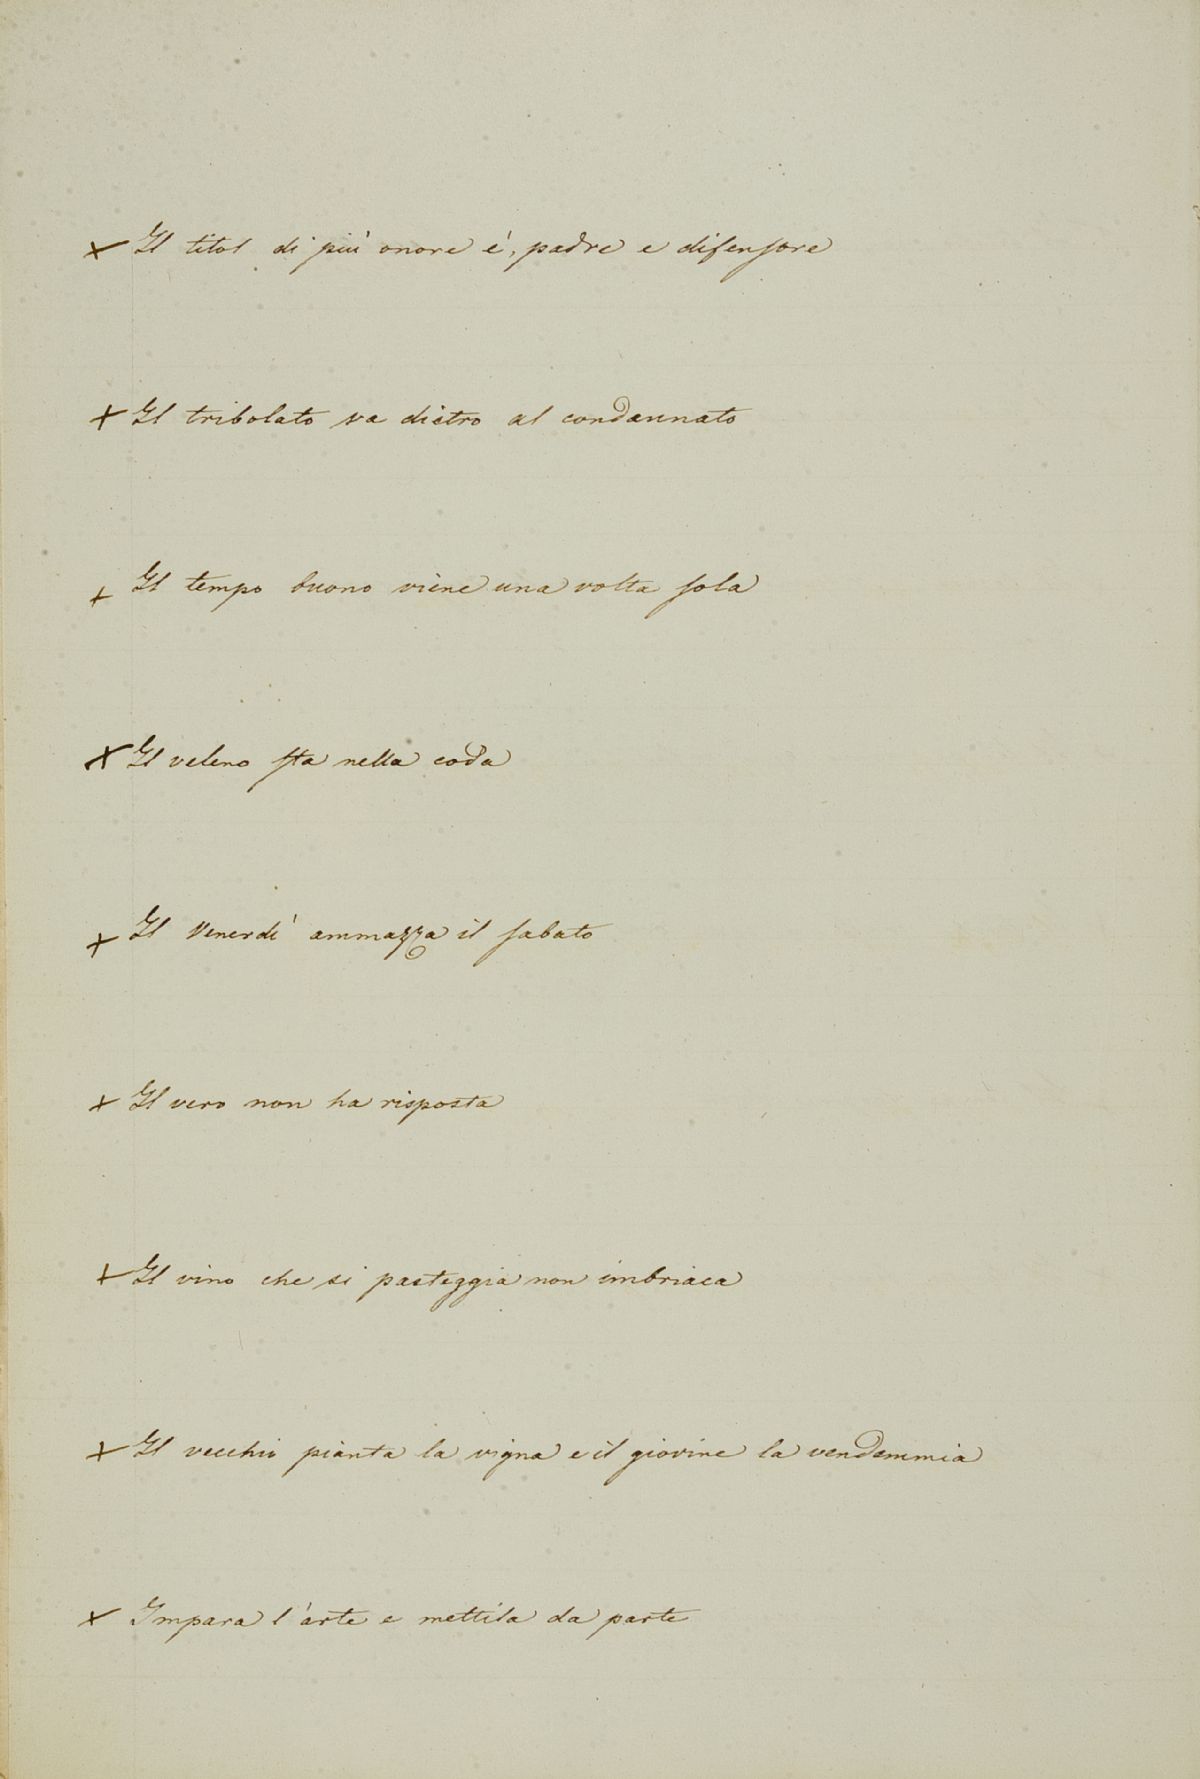 × Il titol di più onore é, padre e difensore
× Il tribolato va dietro al condannato
× Il tempo buono viene una volta sola
× Il veleno sta nella coda
× Il Venerdì ammazza il sabato
× Il vero non ha risposta
× Il vino che si pasteggia non imbriaca
× Il vecchio pianta la vigna e il giovine la vendemmia
× Impara l'arte e mettila da parte